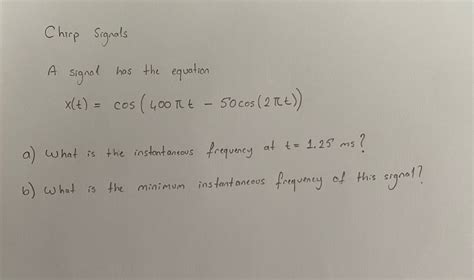 Chirp Signals
A signal has the equation
x(t) = cos (400πt - 50cos(2πt))
a) What is the instantaneous frequency at t= 1.25 ms?
b) What is the minimum instantaneous frequency of this signal?